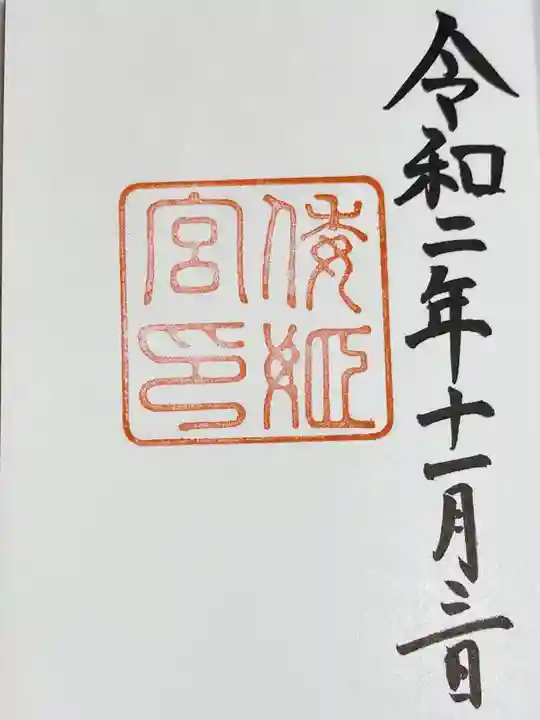 令和二年十一月三日
倭姫
宮印